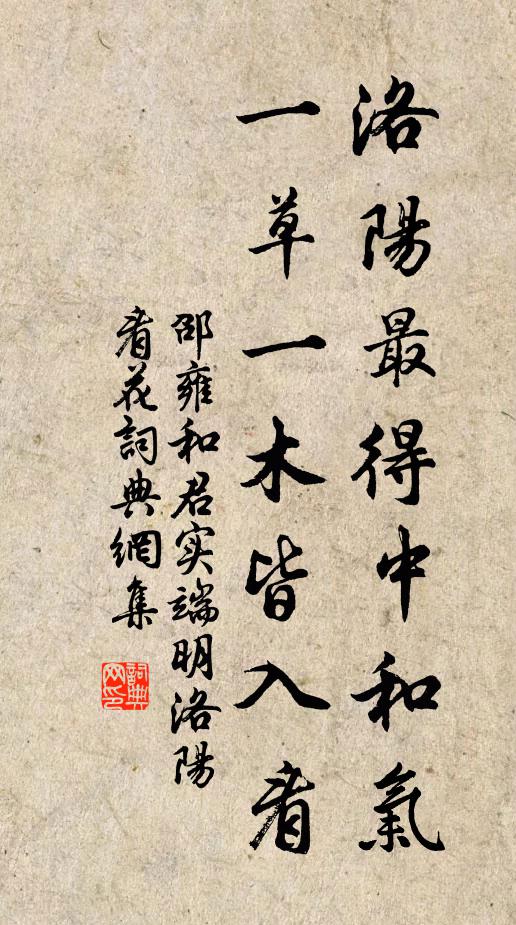 洛陽最得中和氣
一草一木皆入看
邵雍和君实端明洛陽
看花詞典網集
詞典
网印